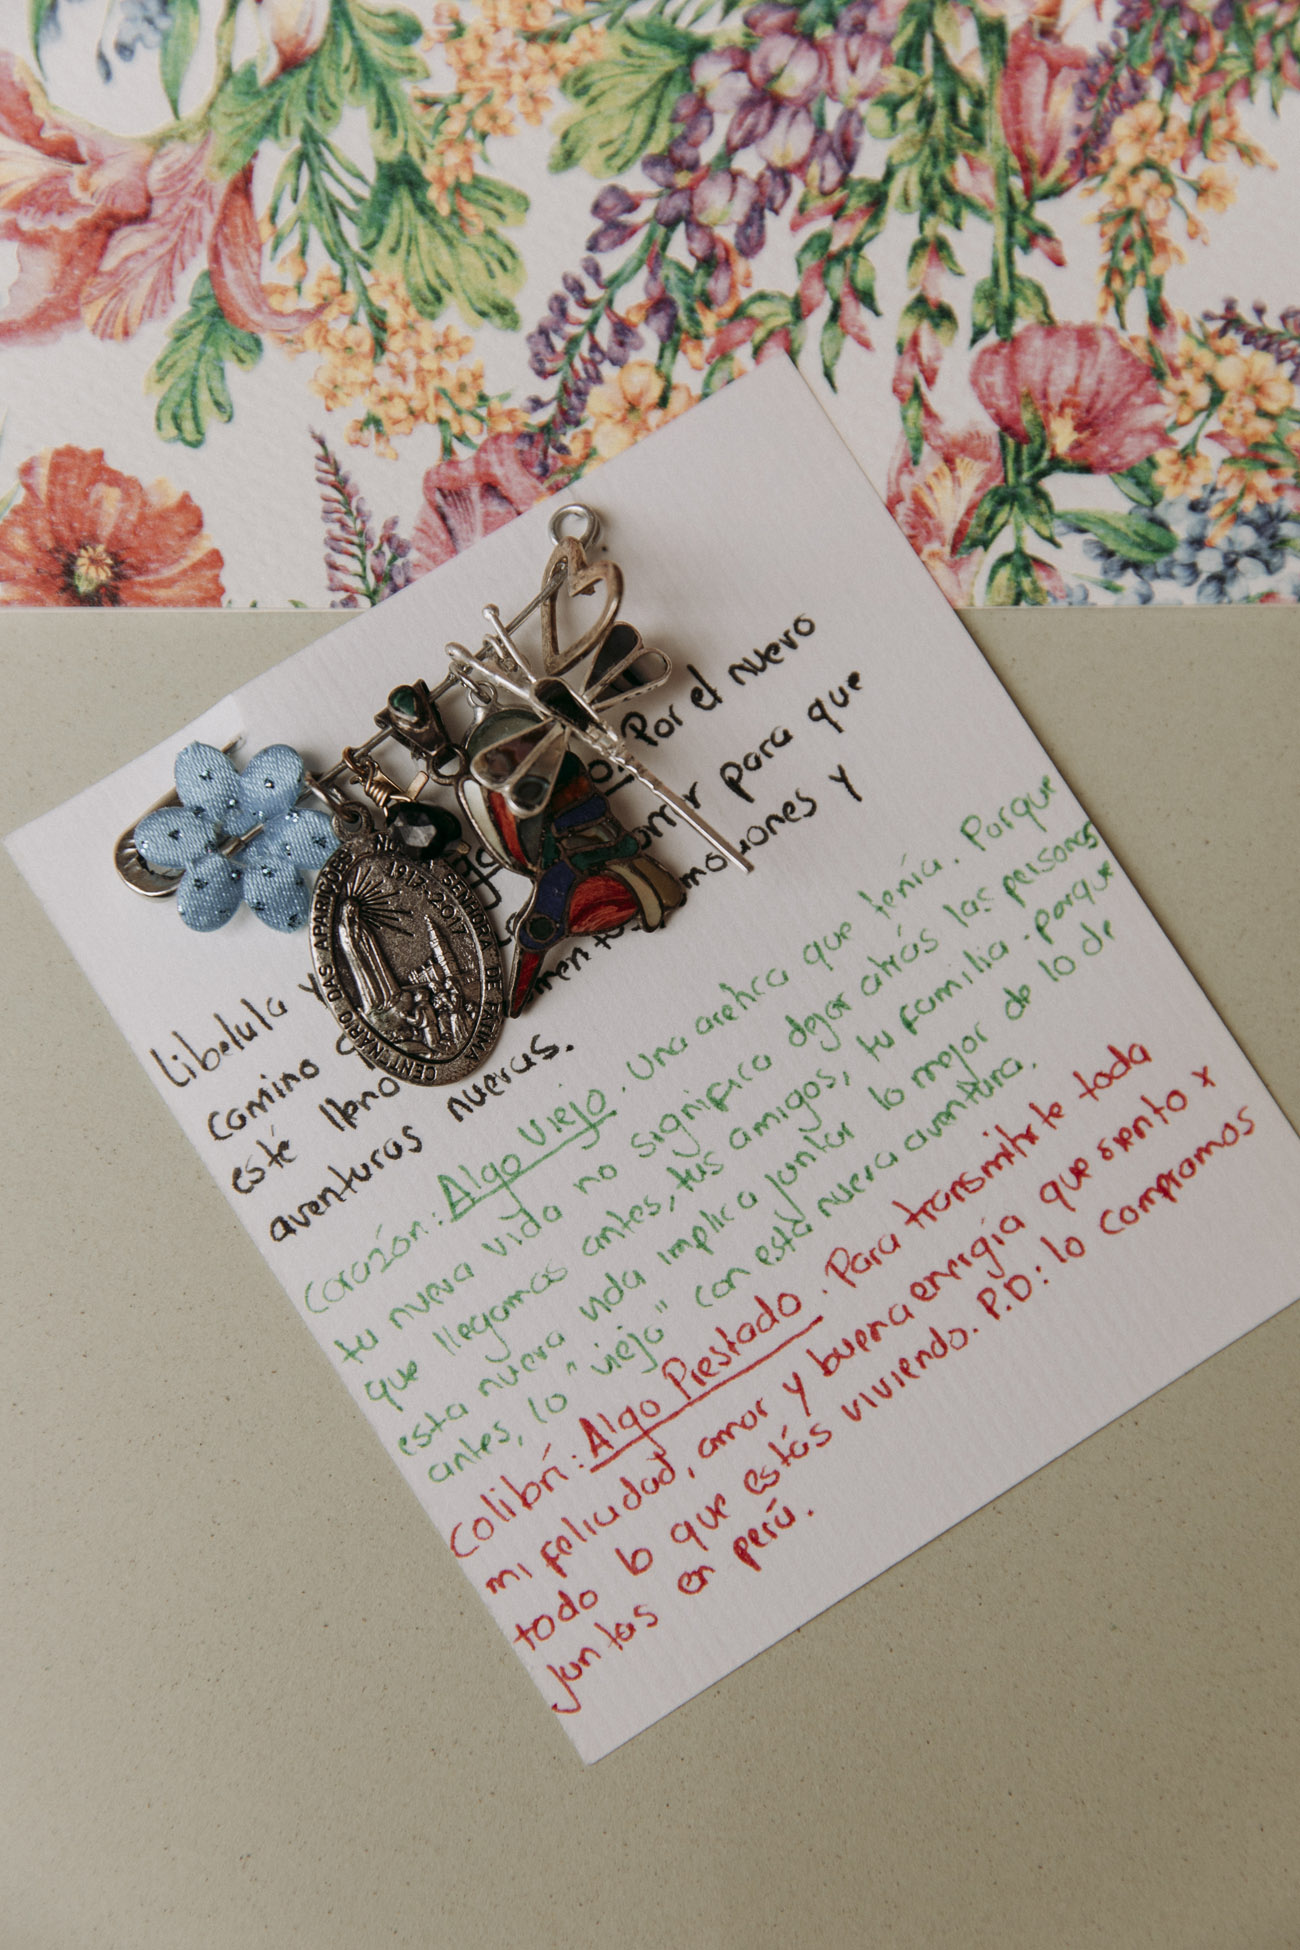 Por el nuevo
Libelula y
camino para que
esté lleno emociones y
aventuras nuevas.
Corazón: Algo Viejo. Una aretica que tenía. Porque
tu nueva vida no significa dejar atrás las personas
que llegamos antes, tus amigos, tu familia. Porque
esta nueva vida implica juntar lo mejor de lo de
antes, lo "viejo" con esta nueva aventura.
Colibrí: Algo Prestado. Para transmitirte toda
mi felicidad, amor y buena energía que siento x
todo lo que estás viviendo. P.D: lo compramos
juntas en perú.
CENTENÁRIO DAS APARIÇÕES NOSSA SENHORA DE FÁTIMA
1917-2017